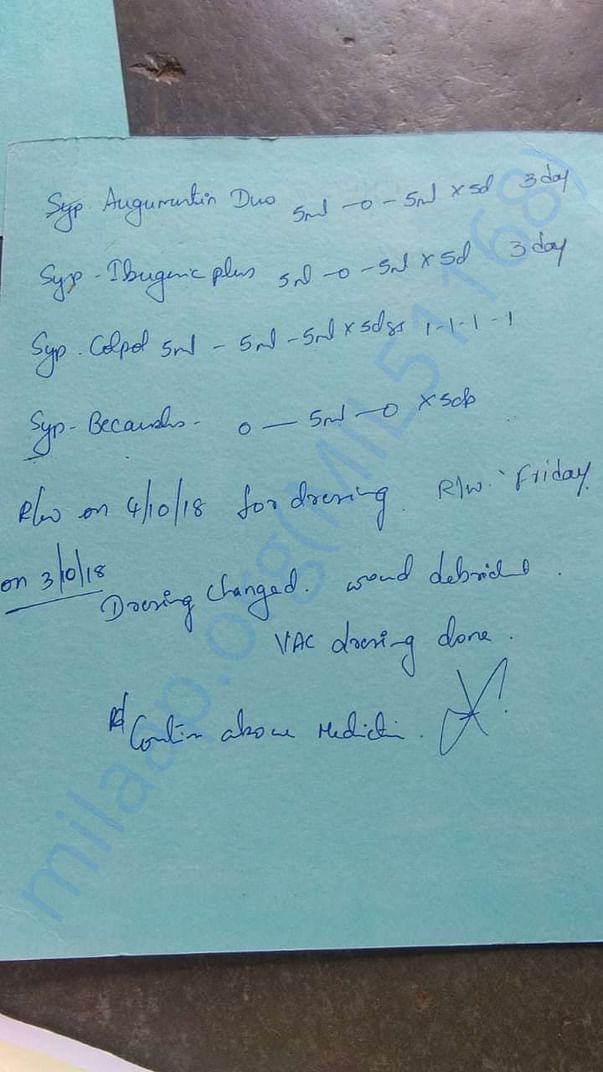 Syp. Augumentin Duo 5ml - 0 - 5ml x 5d 3 day
Syp - Ibugenic plus 5ml - 0 - 5ml x 5d 3 day
Syp. Calpol 5ml - 5ml - 5ml x 5days 1-1-1-1
Syp - 0 — 5ml - 0 x
R/w on 4/10/18 for dressing. R/w. Friday
on 3/10/18
Dressing changed. wound debrided.
VAC dressing done.
Contin above Medicin.
milaap.org(MIL51168)